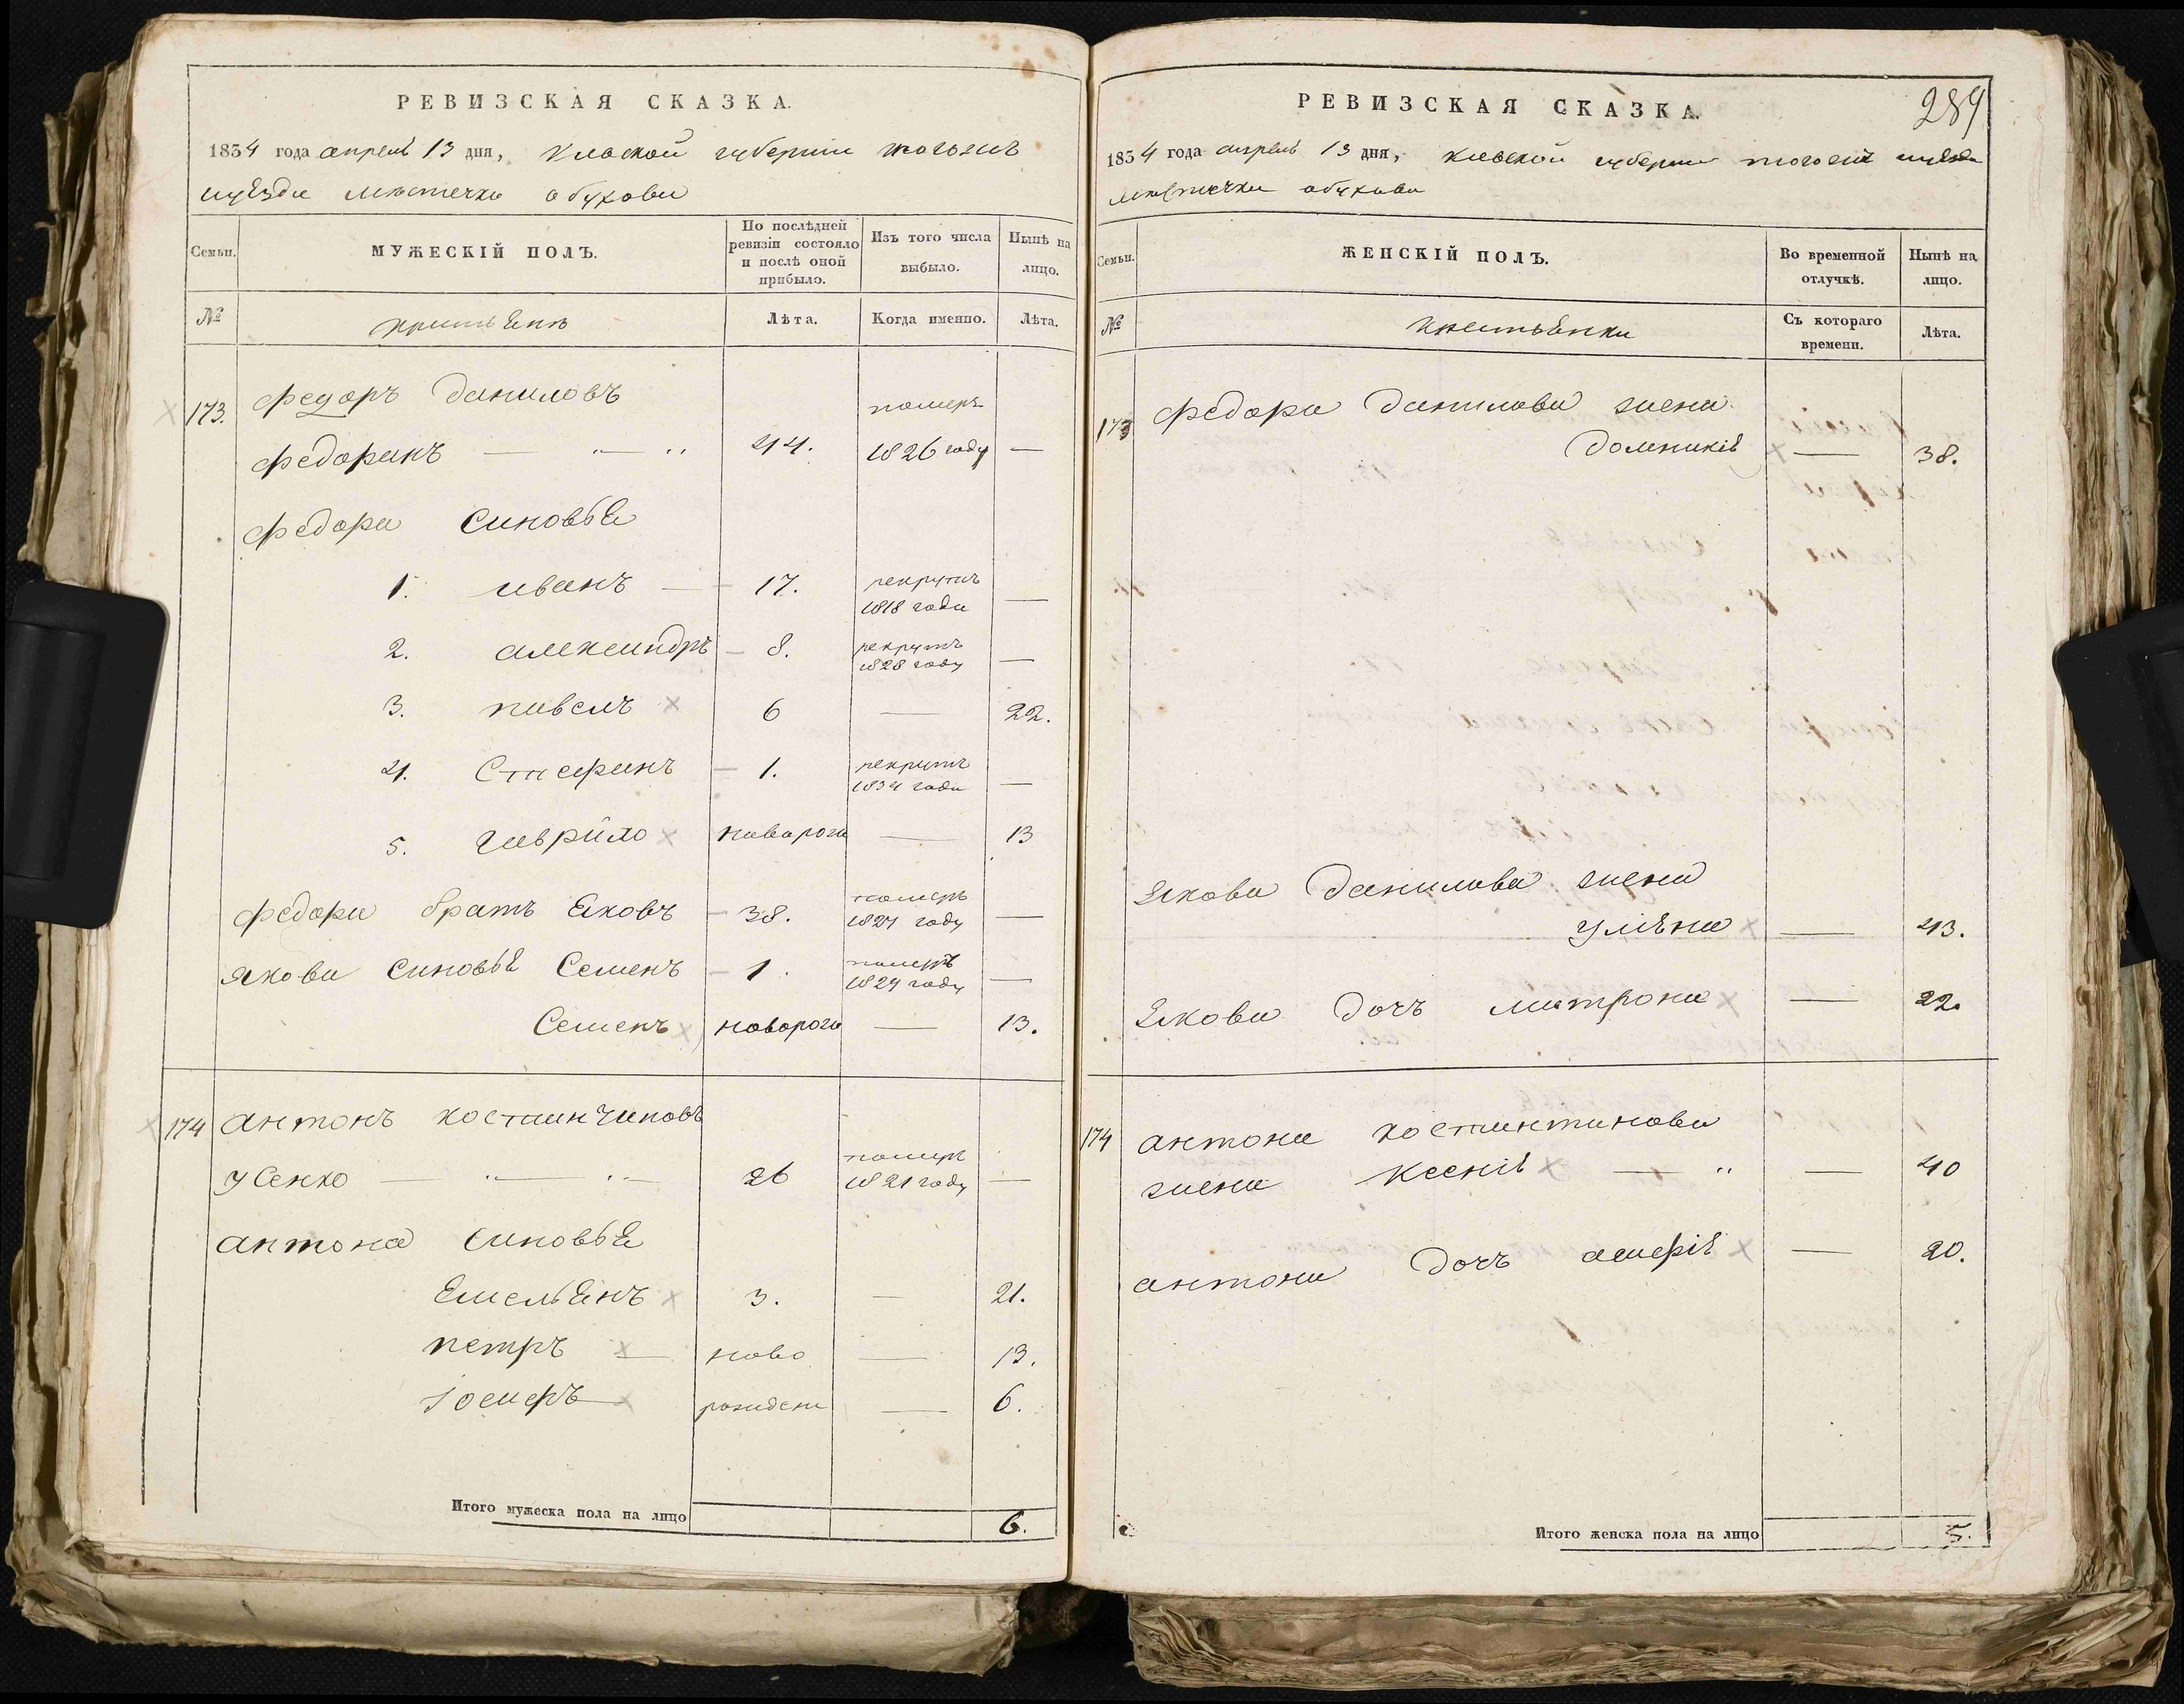 РЕВИЗСКАЯ СКАЗКА.
1834 года апреля 13 дня, Киевской губернии тогожъ
уезда местечка обухова
Семьи.
МУЖЕСКІЙ ПОЛЪ.
По послѣдней ревизіи состояло и послѣ оной прибыло.
Изъ того числа выбыло.
Нынѣ на лицо.
№
Лѣта.
Когда именно.
Лѣта.
173. федоръ даниловъ
федоренкъ 44. померъ 1826 году —
федора синовья
1. иванъ — 17. рекрутъ 1818 года —
2. александръ — 8. рекрутъ 1828 году —
3. павелъ 6 — 22.
4. Стефанъ — 1. рекрутъ 1834 года —
5. гаврило новорож — 13
федора братъ яковъ — 38. померъ 1824 году —
якова синовья Семенъ — 1. померъ 1824 году —
Семенъ новорож — 13.
174 антонъ костянтиновъ
усенко 26 померъ 1821 году —
антона синовья
Емельянъ 3. — 21.
петръ — ново — 13.
Іосифъ рожден — 6.
Итого мужеска пола на лицо 6.
РЕВИЗСКАЯ СКАЗКА.
289
1834 года апреля 13 дня, киевской губернии тогожъ уезда
местечка обухова
Семьи.
ЖЕНСКІЙ ПОЛЪ.
Во временной отлучкѣ.
Нынѣ на лицо.
№
крестьянки
Съ котораго времени.
Лѣта.
173 федора данилова жена
домникія — 38.
якова данилова жена
уляна — 43.
якова дочъ матрона — 22.
174 антона костянтинова
жена ксенія — 40
антона дочъ — 20.
Итого женска пола на лицо 5.